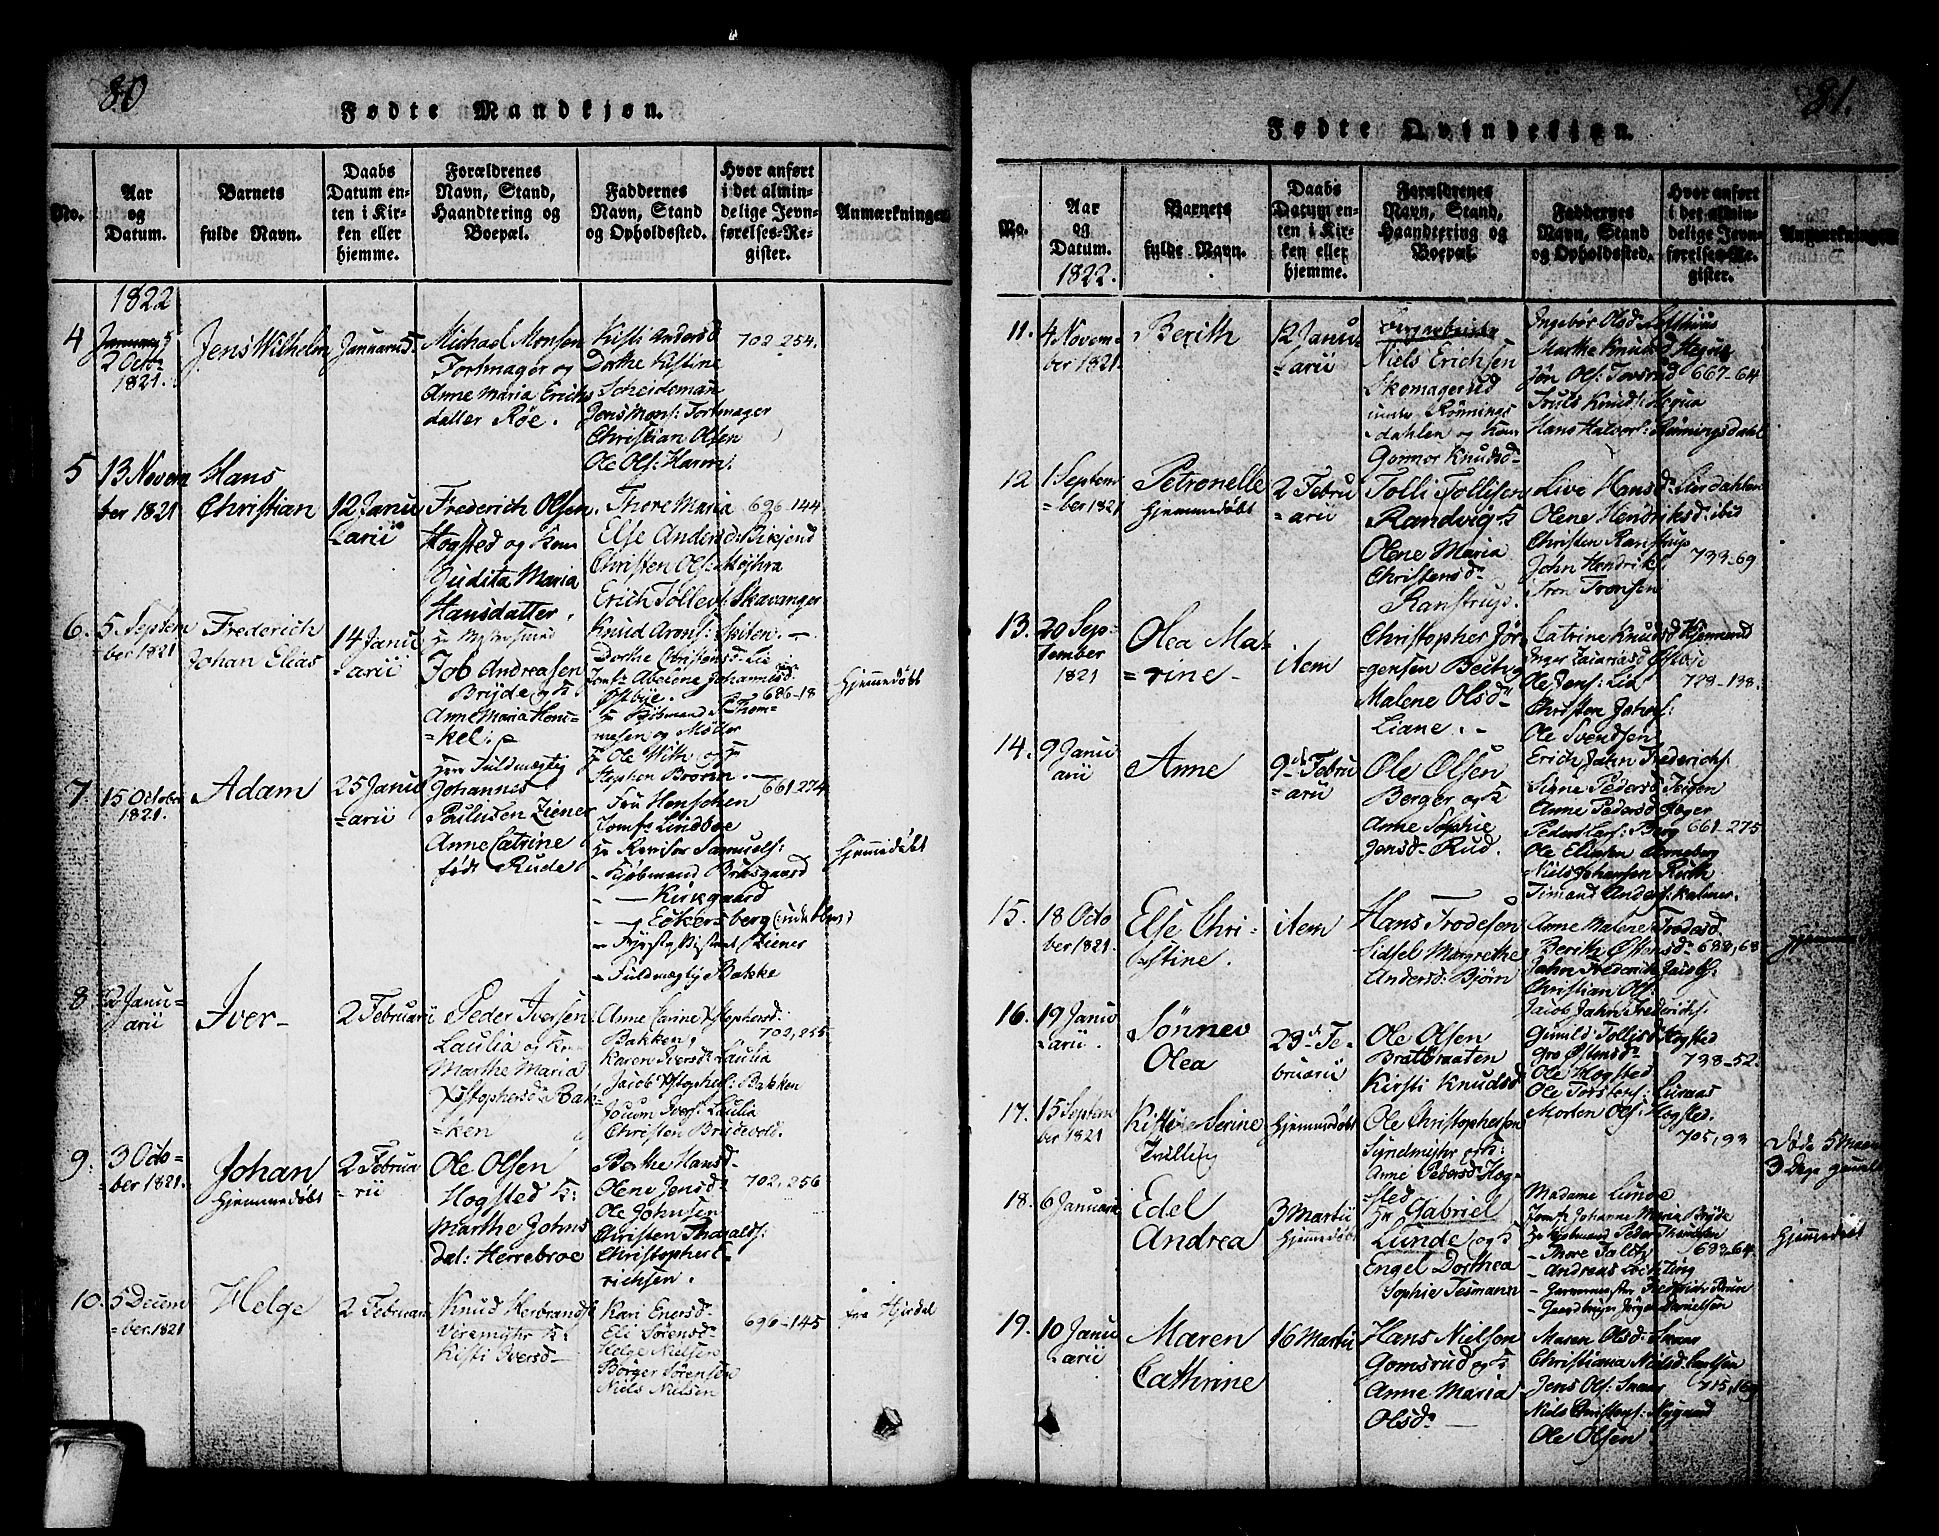 80
Fødte Mandkjøn.
No.
Aar
og
Datum.
Barnets
fulde Navn.
Daabs
Datum en-
ten i Kir-
ken eller
hjemme.
Forældrenes
Navn, Stand,
Haandtering og
Boepæl.
Faddernes
Navn, Stand
og Opholdssted.
Hvor anført
i det almin-
delige Jevn-
førelses-Re-
gister.
Anmærkninger
1822
4
2 Octo
1821.
Jens Wilhelm
Januarii 5.
Michael Monsen
Fortmager og
Anne Maria Erichs
datter Røe.
Kisti Andersd
Dorthe Kistine
Scheideman
Jens Mons: Fortmager
Christian Olsen
Ole Ols: Harm:
702-254.
5
13 Novem
ber 1821
Hans
Christian
12 Janu
arii
Frederich Olsen
Hogsted og Kone
Judita Maria
Hansdatter.
Thore Maria
Else Andersd: Bikjend
Christen Ols: Højhra
Erich Tollevs: Skavanger
696-144
6.
5 Septem
ber 1821
Frederich
Johan Elias
14 Janu
arii
Job Andreasen
Brijde og K
Anne Maria Hen
kel:
Knud Arons: Spiten. -
Dorthe Christensd: Lie
Østbye.
Hr Kjøbmand P: Thom
mesen og Møller
Hr Ole With og Hr
Stephen Brorin. -
686-18
Hjemmedøbt
7.
15 Octobr
1821.
Adam
25 Janu
arii
Herr Fuldmægtig
Johannes
Paulusen Ziener
Anne Catrine
født Rude
Fru Henschen
Jomf: Lindboe
Hr Revisor Samuels:
- Kjøbmand Brusgaard
- Kirkgaard
- Eckersberg (udebleven)
- Ziener
- Fuldmægtig Bakke
661-274
Hjemmedøbt
8
2 Janu-
arii
Iver-
2 Februarii
Peder Iversen
Laulia og Kone
Marthe Maria
Xstophersd: Bak
ken
Anne Carine Xstophersd:
Bakken,
Karen Iversd: Laulia
Jacob Xstophers: Bakken
Joeum Ivers: Laulia
Christen Brudevold.
702,255
9.
3 Octo-
ber 1821.
Johan
Hjemmedøbt
2 Februa
rii
Ole Olsen
Hogsted K:
Marthe Johns
Dat: Herrebroe
Berthe Hansd-
Olene Jensd:
Ole Johnsen
Christen Tharalds:
Christopher E-
richsen.
702,256
10.
5 Decem
ber 1821
Helge
2 Februarii
Knud Herbrands:
Viremyhr K:
Kisti Iversd-
Kari Enersd-
Eli Sørensd-
Helge Nielsen
Børger Sørensen
Niels Nielsen
696-145
fra Hjrdal
81.
Fødte Qvindekjøn.
No.
Aar
og
Datum.
1822.
Barnets
fulde Navn.
Daabs
Datum en-
ten i Kir-
ken eller
hjemme.
Forældrenes
Navn, Stand,
Haandtering og
Boepæl.
Faddernes
Navn, Stand
og Opholdssted.
Hvor anført
i det almin-
delige Jevn-
førelses-Re-
gister.
Anmærkninger
11.
4 Novem-
ber 1821.
Berith
12 Janu
arii
Bergarbeider
Niels Erichsen
Skomagerud
under Rønnings
dahlen og Kone
Gonnor Knudsd-
Ingebør Olsd:
Marthe Knudsd Hegua
Jøn Ols: Tovsrud
Truls Knuds: Hegua
Hans Halvors: Rønningsdahl
667-64
12
1 Septem
ber 1821
Petronelle
Hjemmedøbt
2 Febru
arii
Tolli Tollisen
Randvig K
Olene Maria
Christensd:
Ranstrup.
Live Hansd: Lierdahlen
Olene Hendriksd: ibid
Christen Ranstrup
John Hendriks:
Tron Tronsen
739-69
13.
20 Sep-
tember
1821
Olea Ma-
rine-
item
Christopher Jør
gensen Bestv
Malene Olsd-
Liane. -
Catrine Knudsd Hjennerud
Inger Zacariasd Østbye
Ole Jens: Lid
Christen Johns:
Ole Svendsen
723-138.
14.
9 Janu
arii
Anne
9d Febru
arii
Ole Olsen
Berger og K
Anne Sophie
Jensd- Rud.
Erich Jahn Frederichs:
Signe Pedersd Teigen
Anne Pedersd Jeger
Peder Lars: Berg
Ole Eliasen Arneberg
Niels Johansen Ruth
Timand Anders: Kalmer.
661-275
15.
18 Octo
ber 1821.
Else Chri-
stine.
item
Hans Frodesen
Sidsel Margrethe
Andersd: Bjørn
Anne Malene Frodesd:
Berithe Østensd-
Jahn Frederich
Christian Ols:
Jacob Jahn Frederichs:
688,68
Hjemmedøbt
16.
19 Janu
arii.
Sønnev
Olea
23d Fe-
bruarii
Ole Olsen
Bratbraaten
Kirsti Knudsd
Gunild Tollisd Hogsted
Gro Østensd-
Ole Hogsted
Ole Torstens: Luraas
Morten Ols: Hogsted.
738-52.
17.
15 Septem
ber 1821
Kistine Serine
Tvilling
Hjemmedøbt
Ole Christophersen
Synelmyhr og K:
Anne Pedersd: Hog-
sted
705,93
Død 5 Maaneder
3 Dage gammel
18.
6 Januarii
Edel
Andrea
3 Martii
Hjemmedøbt
Hr Gabriel
Lunde og K
Engel Dorthea
Sophie Tesmann
Madame Lunde
Jomf: Johanne Maria Brijde
Hr Kjøbmand Peder Thomesen
- Thore Foltz
- Andreas Lochting
- Garvermester Fredrich Bruun
- Gaardbruger Jørgen Danielsen
683-64
Hjemmedøbt
19.
10 Janu
arii
Maren
Cathrine
16 Martii
Hans Nielsen
Gomsrud og K
Anne Maria
Olsd-
Maren Olsd: Snaar
Christiana Nielsd: Carlsen
Jens Ols: Snaar
Niels Christens: Nygaard
Ole Olsen
715,169